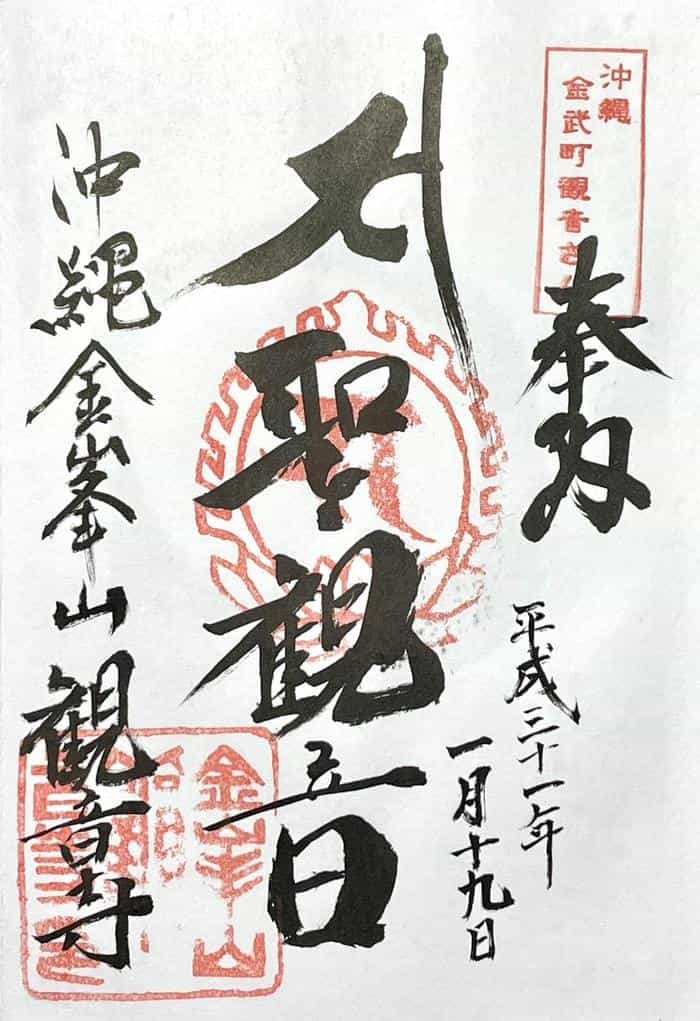 沖縄
金武町観音さん
奉拝
平成三十一年
一月十九日
聖観音
沖縄金峯山観音寺